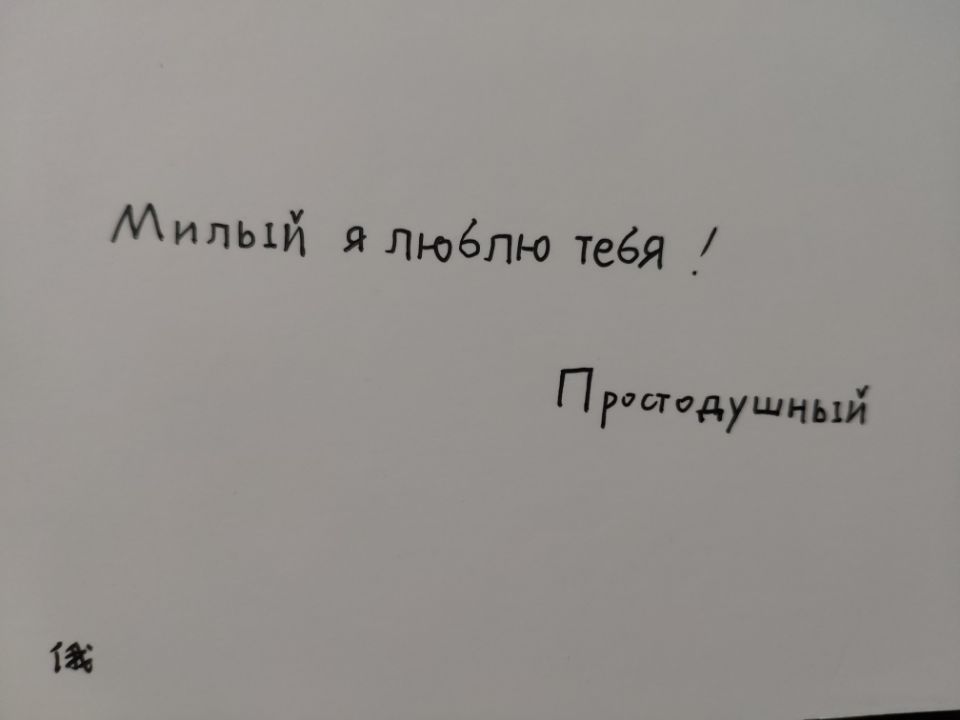 Милый я люблю тебя !
Простодушный
俄